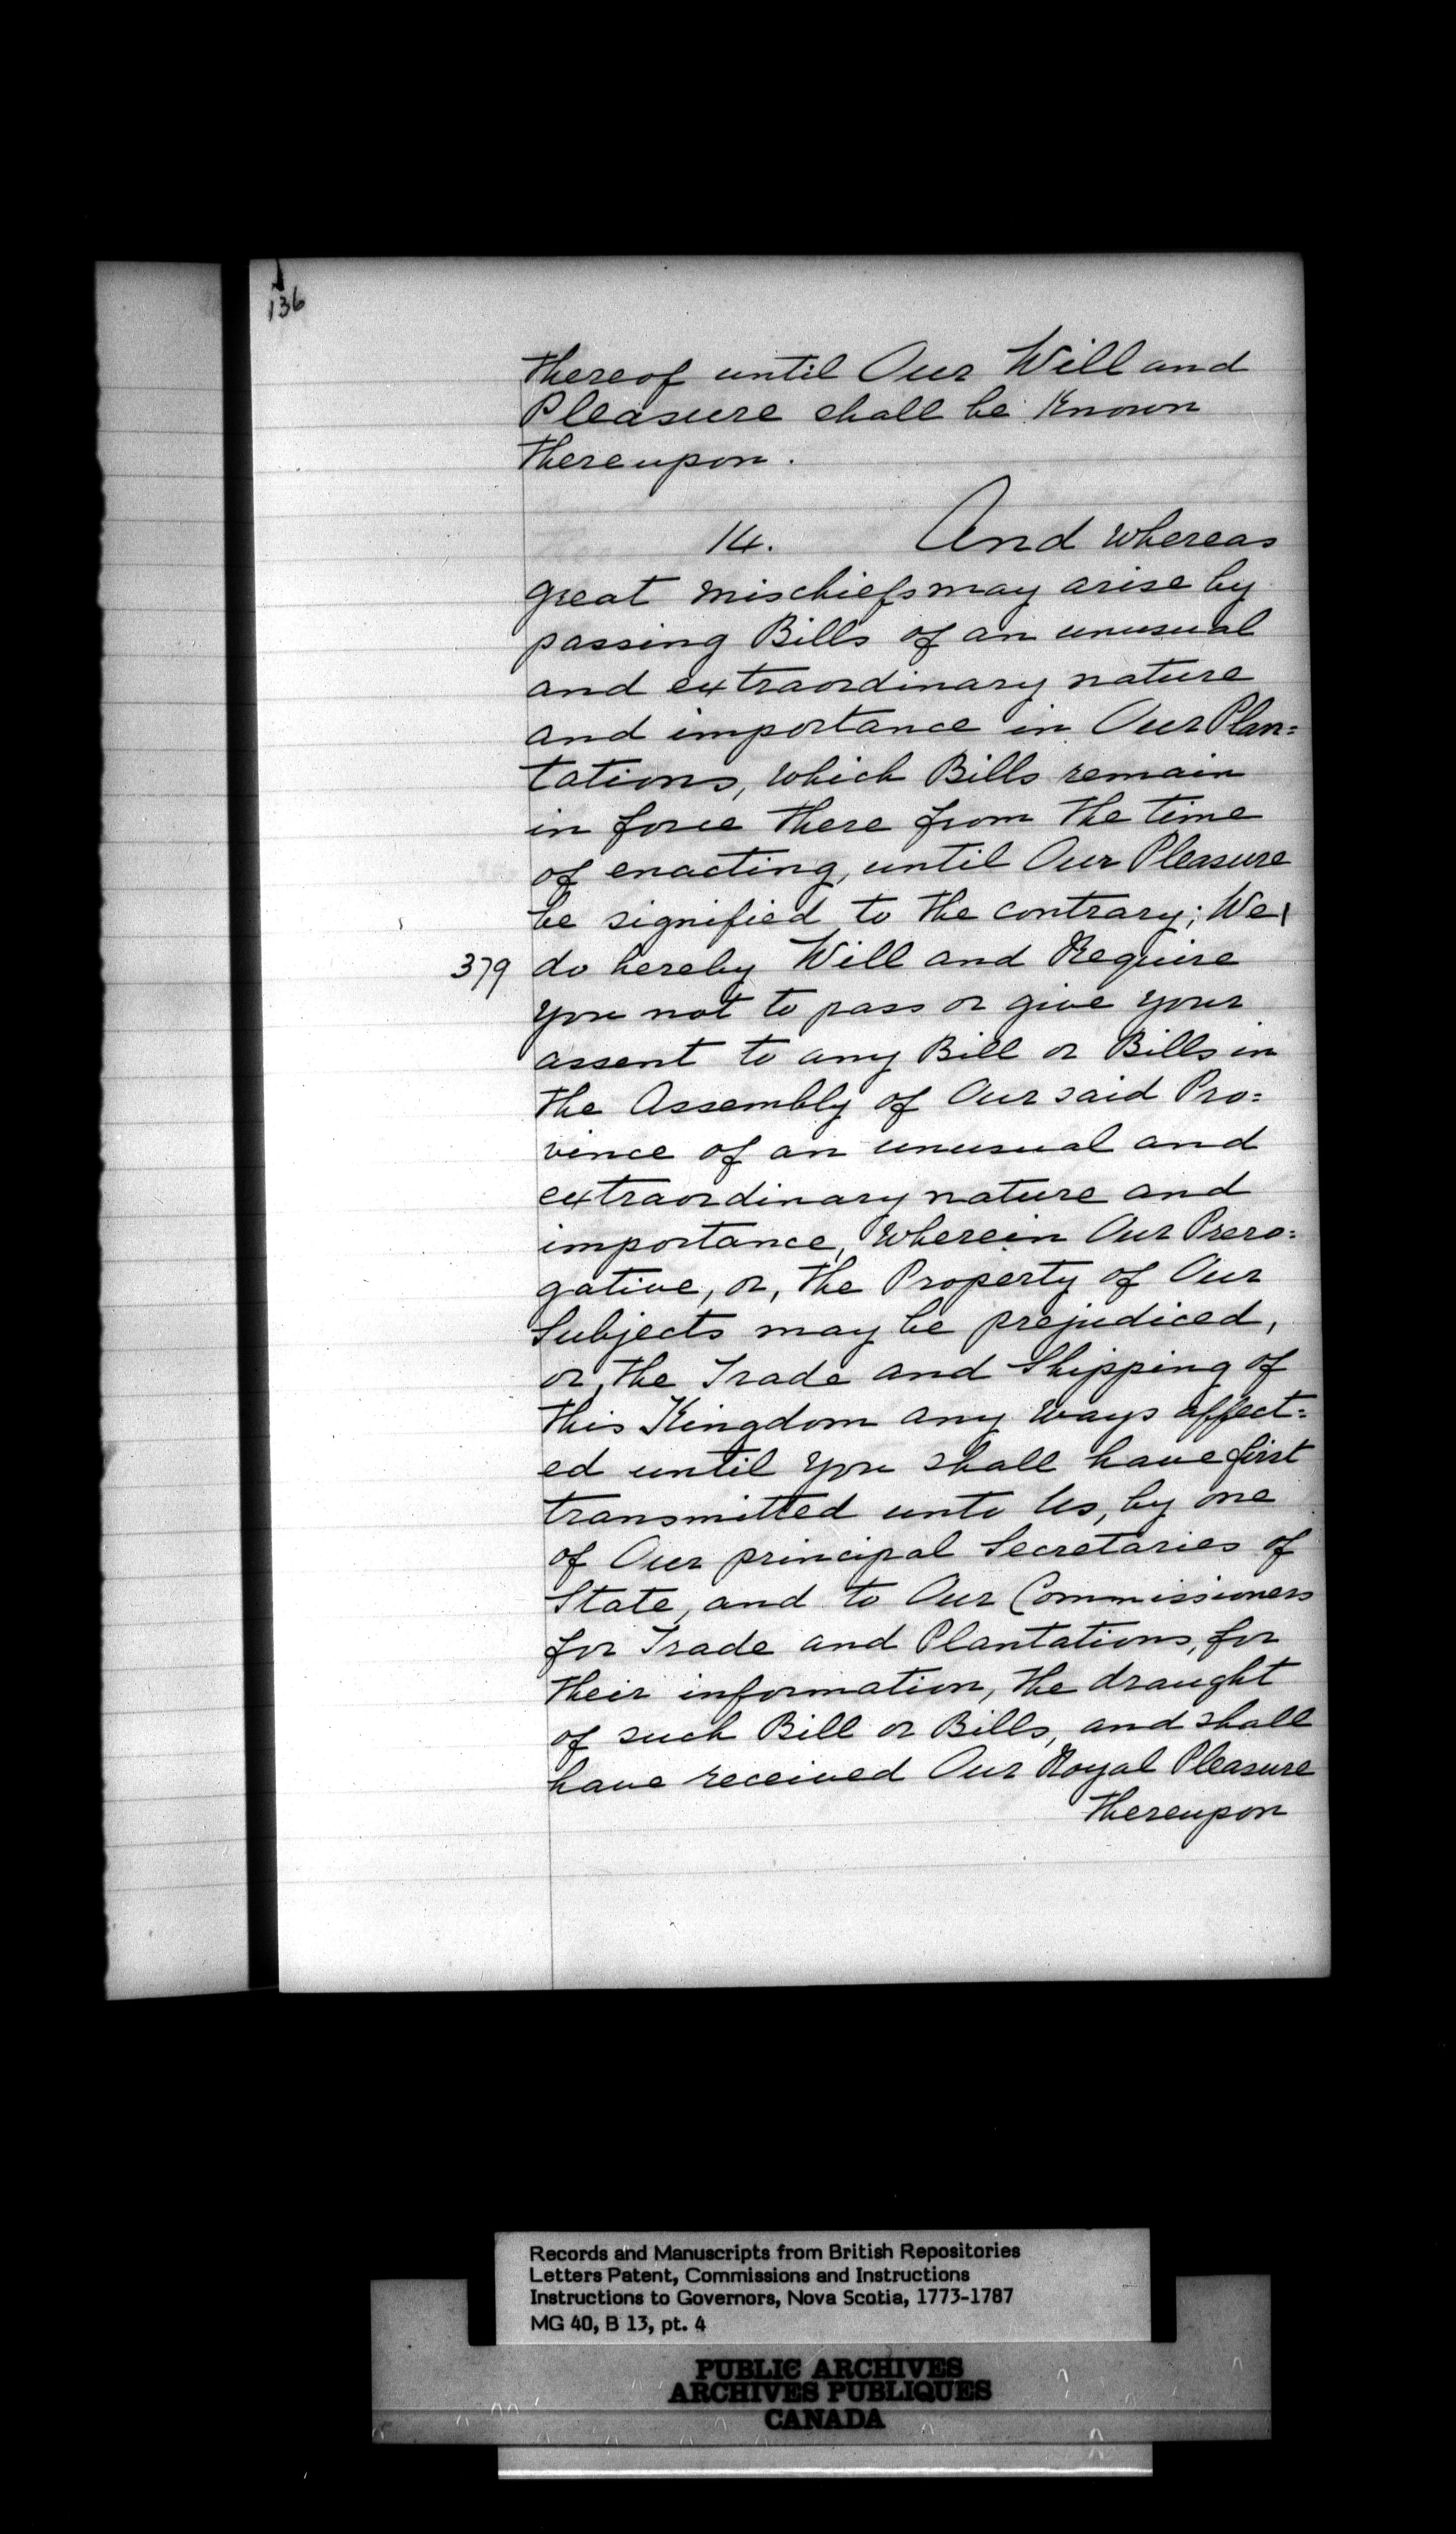 136
thereof until Our Will and
Pleasure shall be Known
thereupon.
14. And whereas
great mischiefs may arise by
passing Bills of an unusual
and extraordinary nature
and importance in Our Plan=
tations, which Bills remain
in force there from the time
of enacting, until Our Pleasure
be signified to the contrary; We|
379 do hereby Will and Require
you not to pass or give your
assent to any Bill or Bills in
the Assembly of Our said Pro=
vince of an unusual and
extraordinary nature and
importance, wherein Our Prero=
gative, or, the Property of Our
Subjects may be prejudiced,
or, the Trade and Shipping of
this Kingdom any ways affect=
ed until you shall have first
transmitted unto Us, by one
of Our principal Secretaries of
State, and to Our Commissioners
for Trade and Plantations, for
their information, the draught
of such Bill or Bills, and shall
have received Our Royal Pleasure
thereupon
Records and Manuscripts from British Repositories
Letters Patent, Commissions and Instructions
Instructions to Governors, Nova Scotia, 1773-1787
MG 40, B 13, pt. 4
PUBLIC ARCHIVES
ARCHIVES PUBLIQUES
CANADA